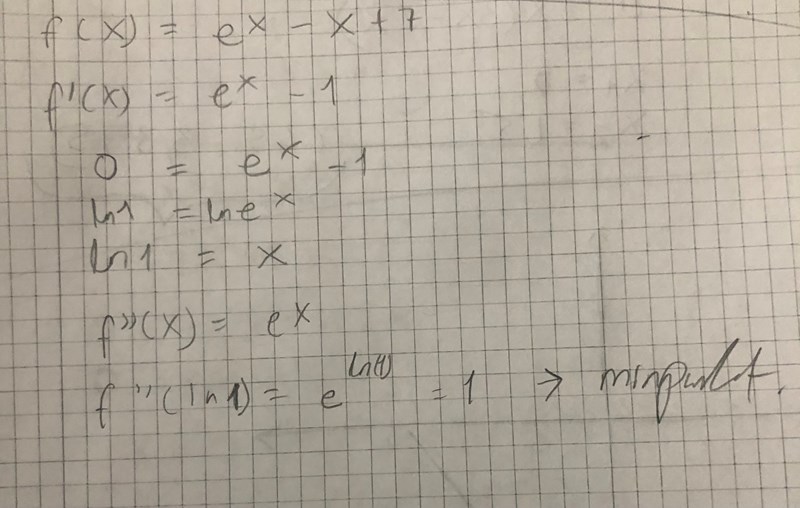 f(x) = e^x - x + 7
f'(x) = e^x - 1
0 = e^x - 1
ln1 = ln e^x
ln1 = x
f''(x) = e^x
f''(ln1) = e^ln(1) = 1 → minpunkt.